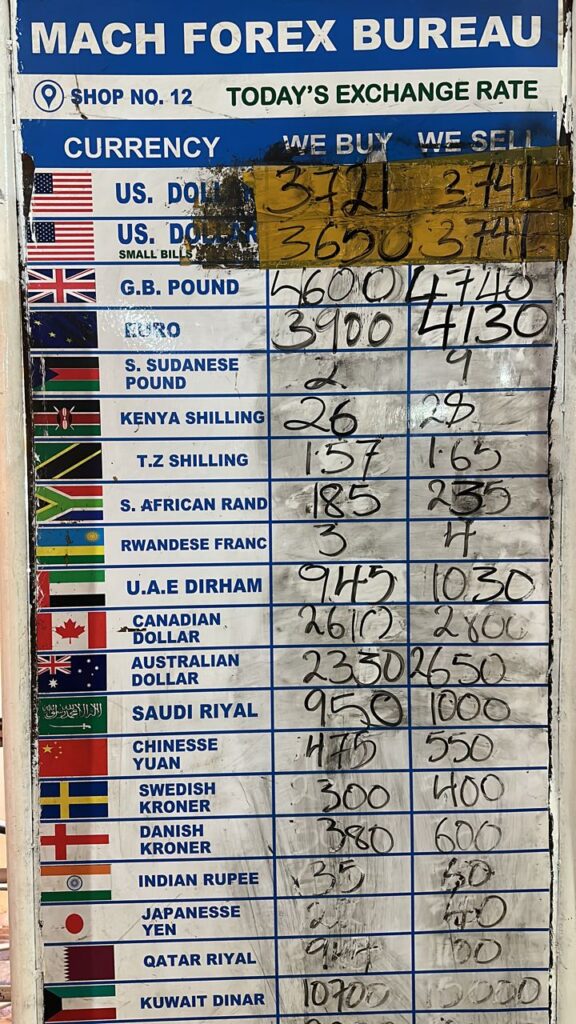 MACH FOREX BUREAU
SHOP NO. 12 TODAY'S EXCHANGE RATE
CURRENCY WE BUY WE SELL
US. DOLLAR 3721 3741
US. DOLLAR 3650 3741
SMALL BILLS
G.B. POUND 4600 4740
EURO 3900 4130
S. SUDANESE
POUND 2 9
KENYA SHILLING 26 28
T.Z SHILLING 1.57 1.65
S. AFRICAN RAND 185 235
RWANDESE FRANC 3 4
U.A.E DIRHAM 945 1030
CANADIAN
DOLLAR 2610 2800
AUSTRALIAN
DOLLAR 2330 2650
SAUDI RIYAL 950 1000
CHINESSE
YUAN 475 550
SWEDISH
KRONER 300 400
DANISH
KRONER 380 600
INDIAN RUPEE 35
JAPANESSE
YEN
QATAR RIYAL
KUWAIT DINAR 10700